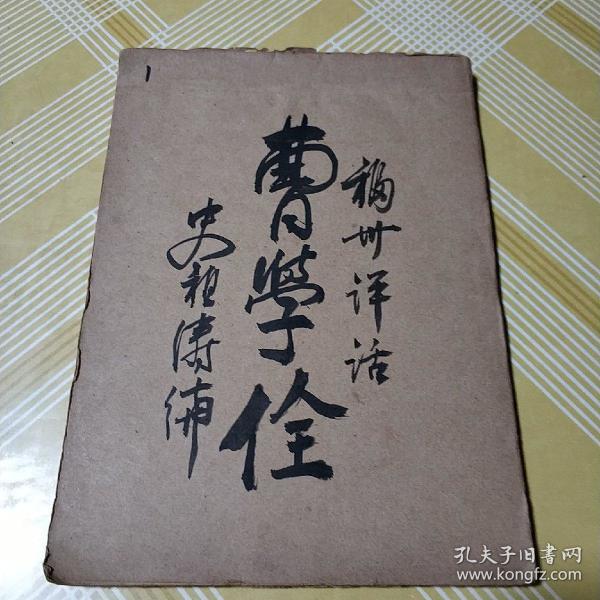 福州评话
曹學佺
史祖涛
1
孔夫子旧书网
www.kongfz.com